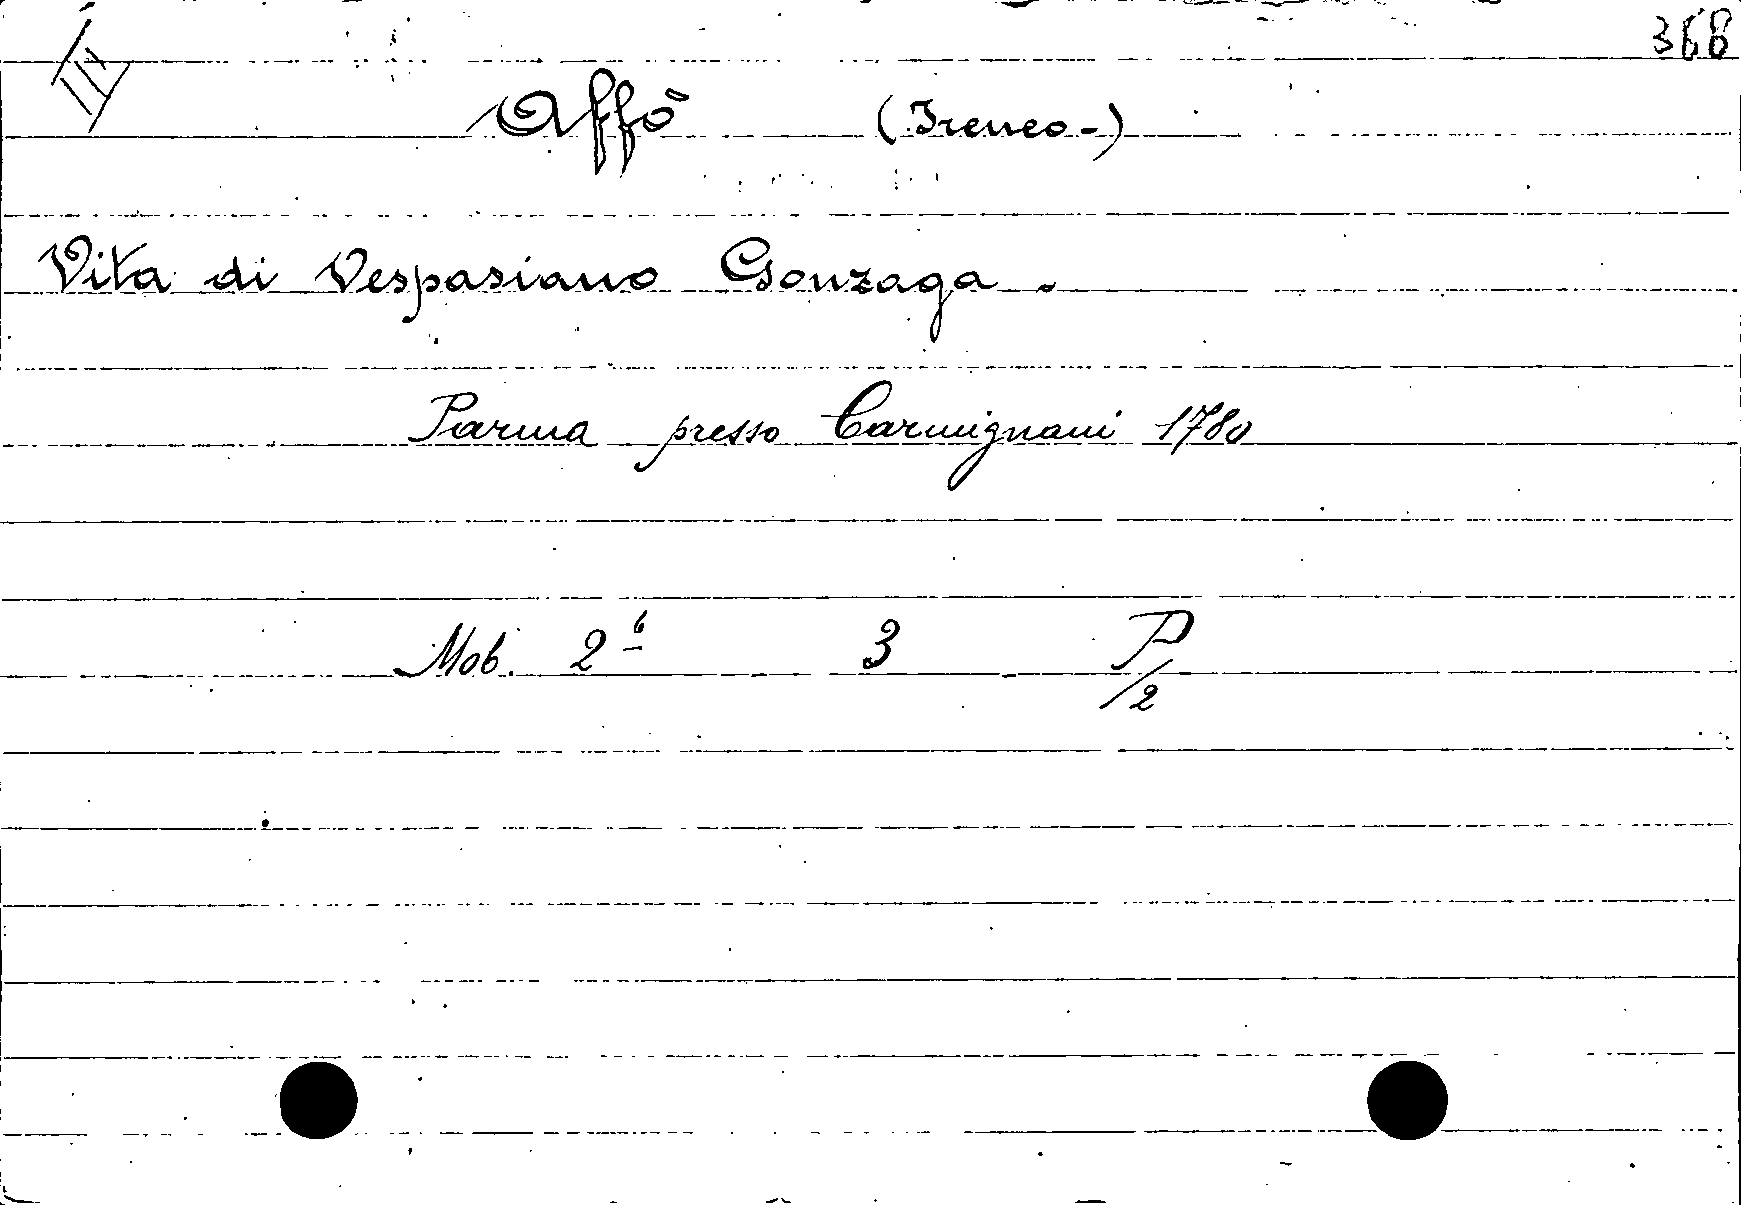 III 368
Affò (Ireneo-)
Vita di Vespasiano Gonzaga.
Parma presso Carmignani 1780
Mob. 2 3 P/2